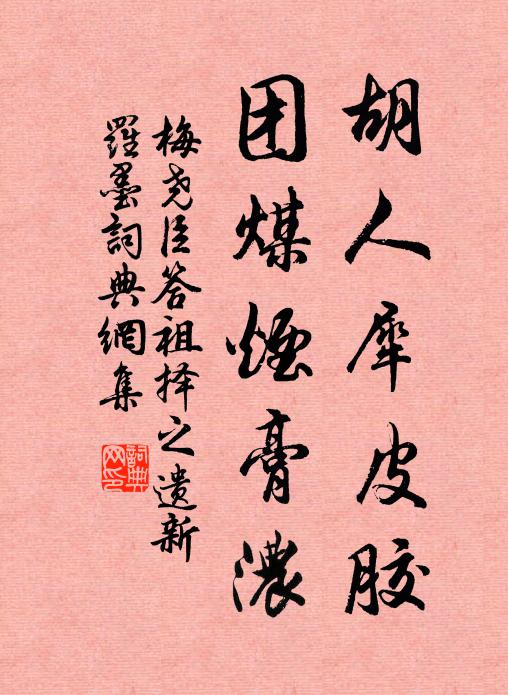 胡人犀皮胶
团煤煙膏濃
梅尧臣答祖择之遗新
羅墨詞典網集
詞典
网印